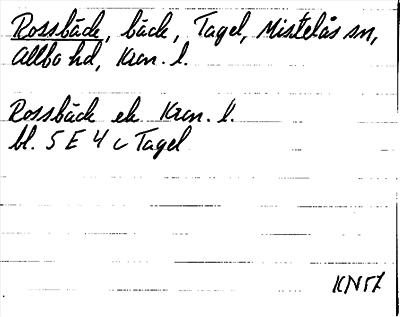 Rossbäck, bäck, Tagel, Mistelås sn,
Allbo hd, Kron. l.
Rossbäck ek Kron. l.
bl. 5 E 4 c Tagel
KN57